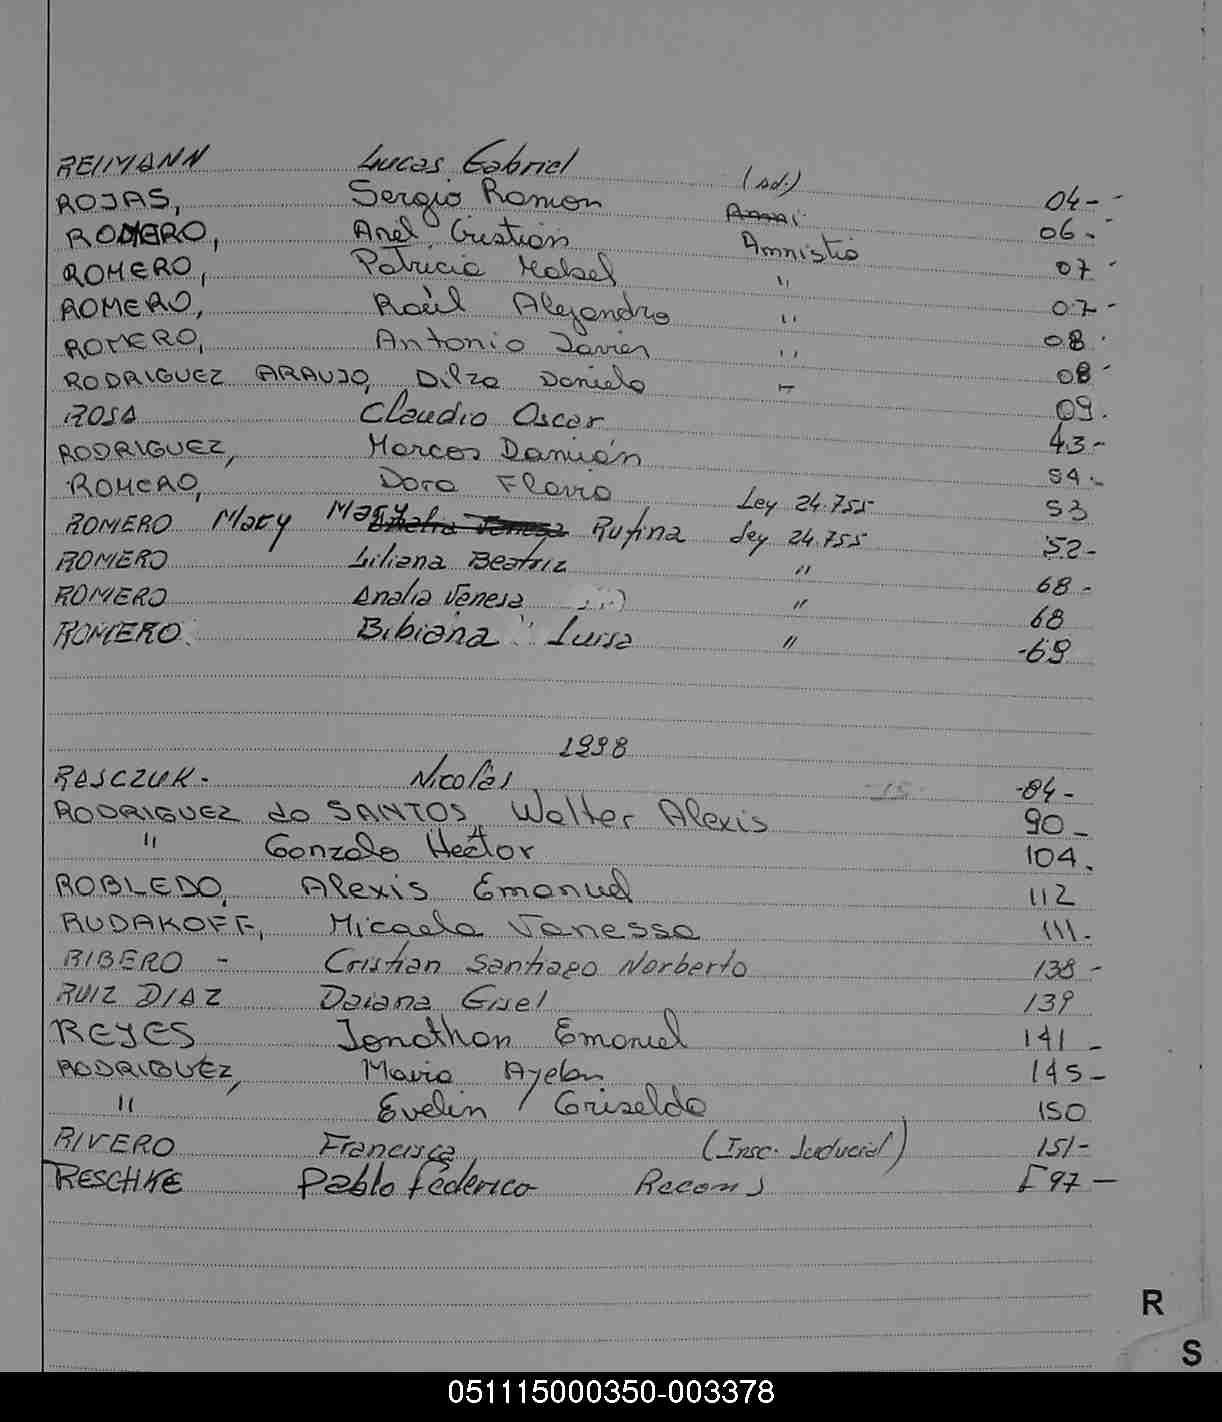 REIMANN Lucas Gabriel 04-
ROJAS, Sergio Ramon (Ad.) 06-
ROMERO, Ariel Cristian Amnistia 07
ROMERO, Patricia Mabel " 07-
ROMERO, Raúl Alejandro " 08
ROMERO, Antonio Javier " 08
RODRIGUEZ ARAUJO, Dilza Daniela - 09.
ROSA Claudio Oscar 43-
RODRIGUEZ, Marcos Damián 54-
ROMERO, Dora Flavia Ley 24.755 53
ROMERO Mary Mary Rufina Ley 24.755 52-
ROMERO Liliana Beatriz " 68-
ROMERO Analia Venesa " 68
ROMERO Bibiana Luisa " -69
1998
RASCZUK- Nicolás -84-
RODRIGUEZ do SANTOS, Walter Alexis 90-
" Gonzalo Hector 104.
ROBLEDO, Alexis Emanuel 112
RUDAKOFF, Micaela Vanessa 111.
RIBERO - Cristian Santiago Norberto 138-
RUIZ DIAZ Daiana Gisel 139
REYES Jonathan Emanuel 141-
RODRIGUEZ, Maria Ayelen 145-
" Evelin Griselda 150
RIVERO Francisca (Insc. Judicial) 151-
RESCHKE Pablo Féderico 97-
R
S
051115000350-003378